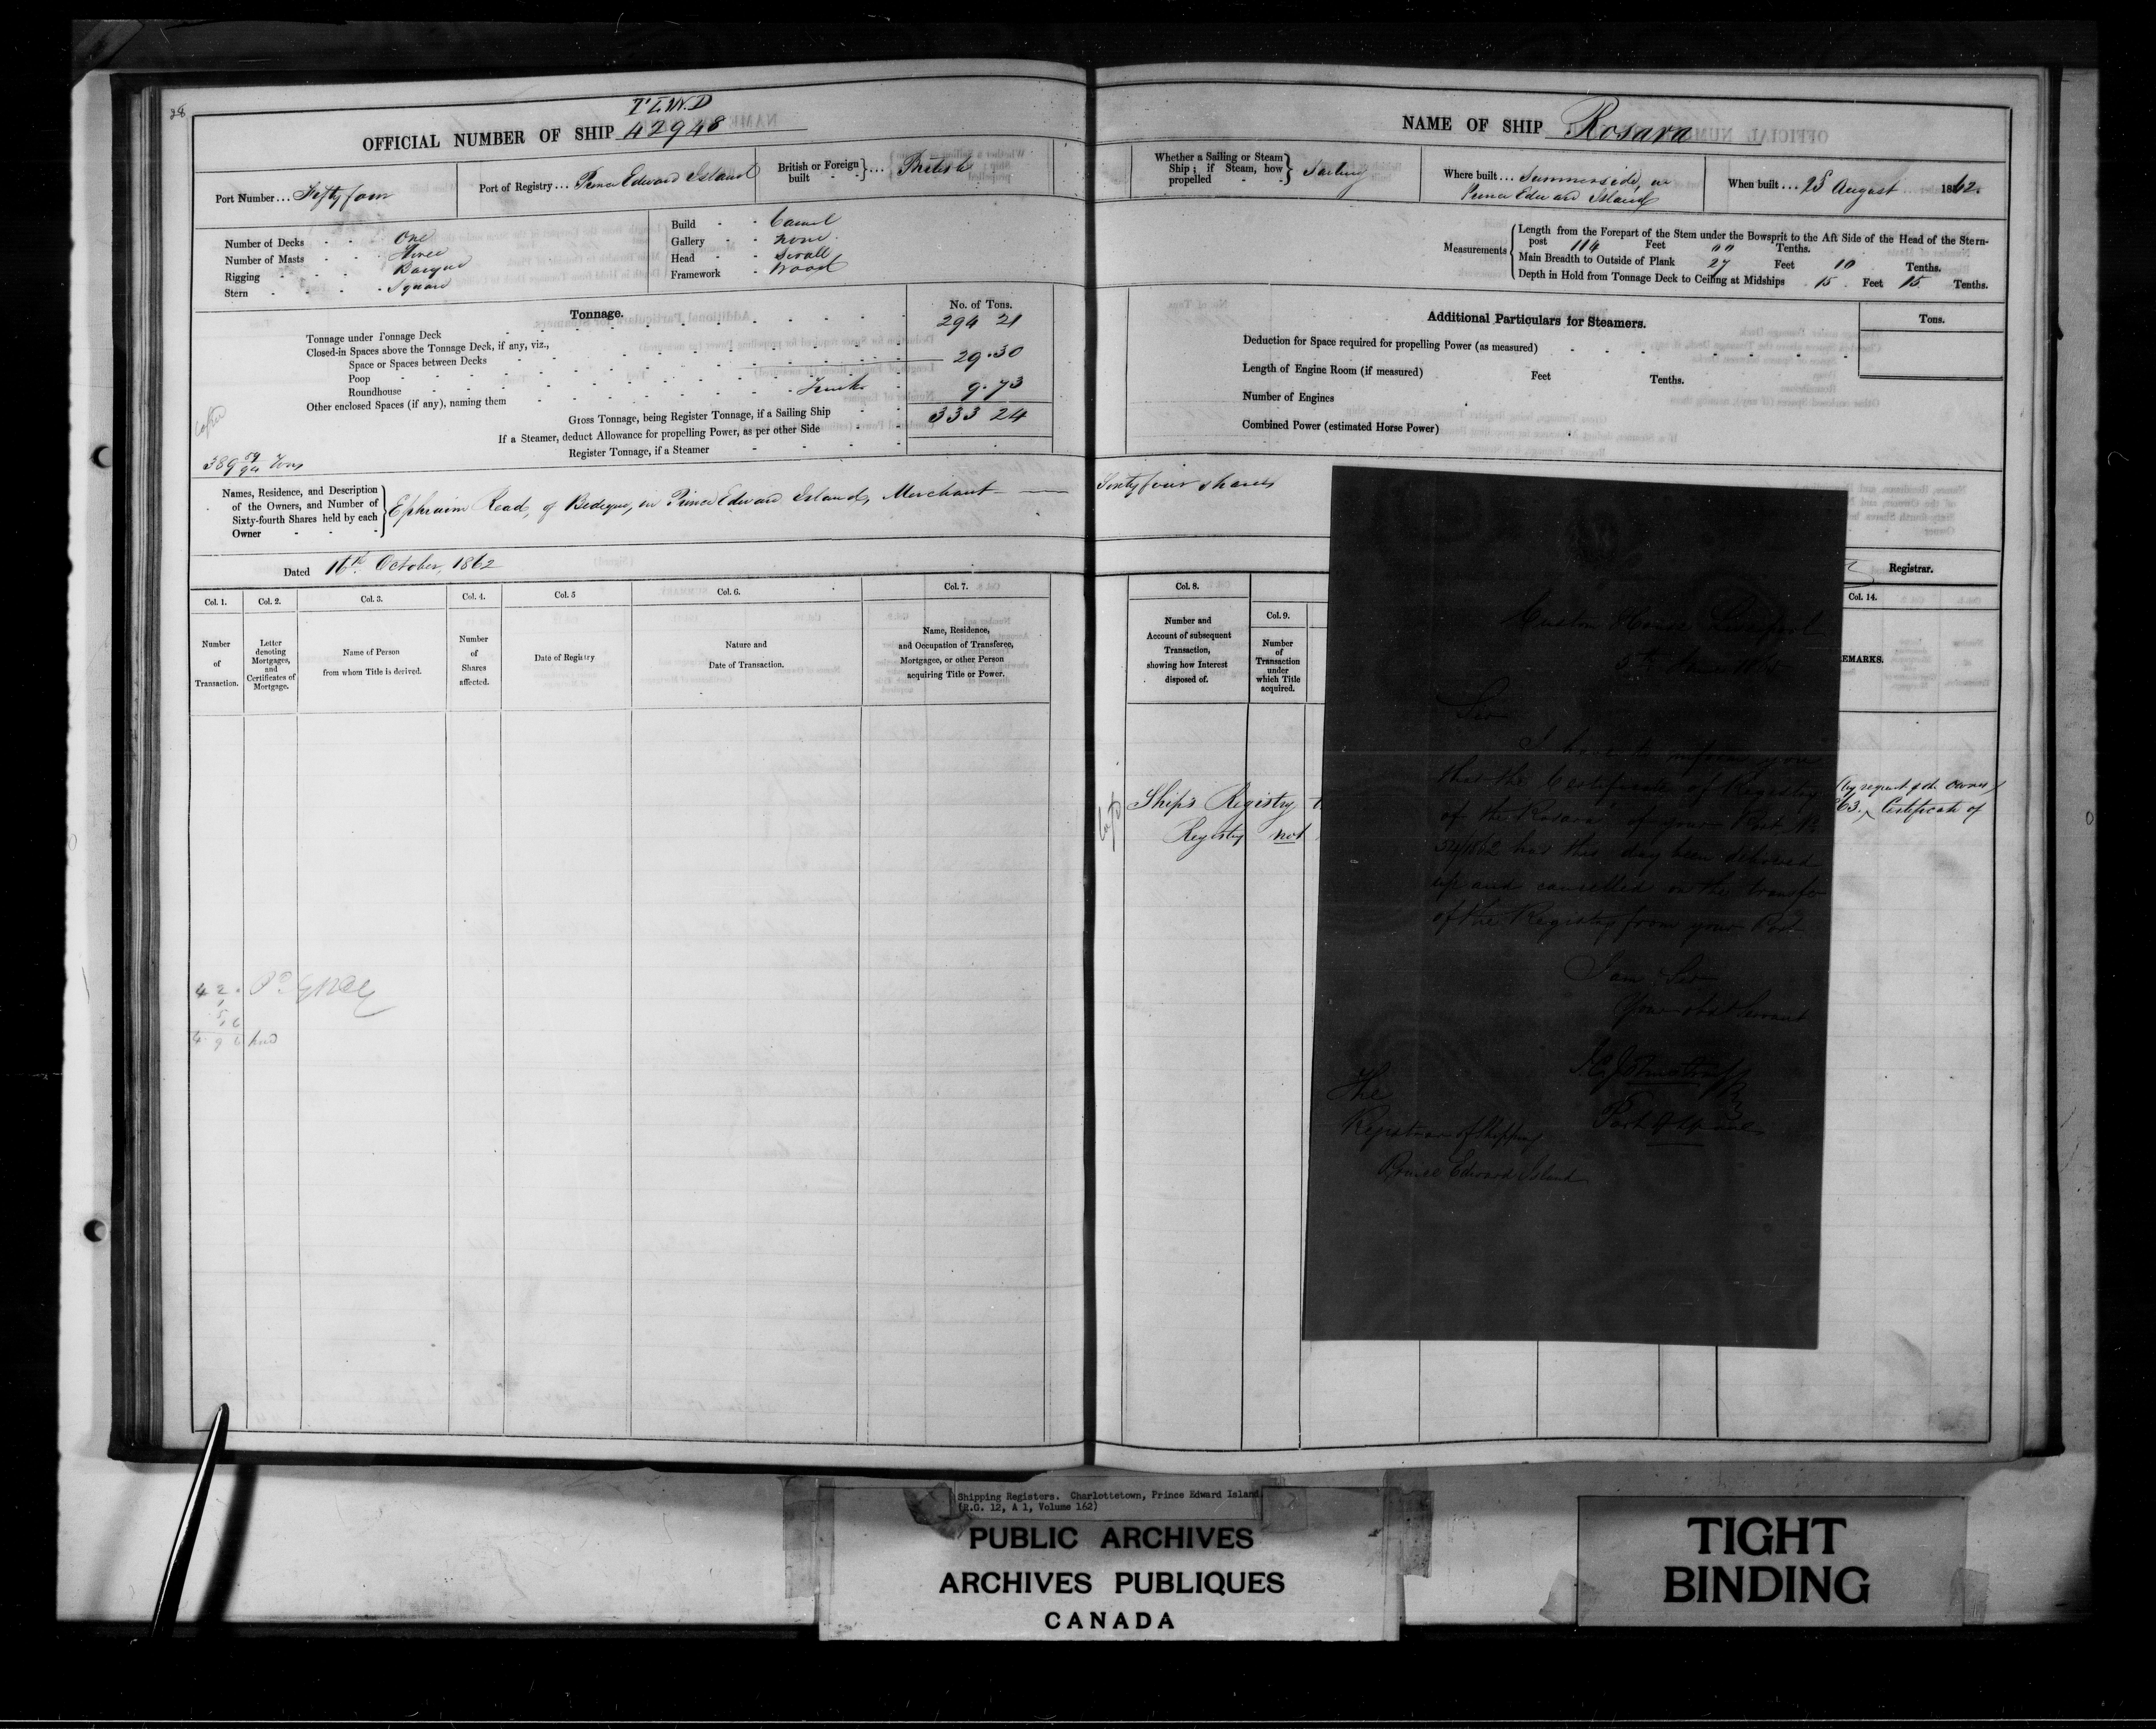 38
T.L.W.D
OFFICIAL NUMBER OF SHIP 42948
Port Number ... Fifty four
Port of Registry ... Prince Edward Island
British or Foreign built ... British
Number of Decks One
Number of Masts Three
Rigging Barque
Stern Square
Build Carvel
Gallery none
Head Scroll
Framework Wood
Tonnage. No. of Tons.
Tonnage under Tonnage Deck 294 21
Closed-in Spaces above the Tonnage Deck, if any, viz.,
Space or Spaces between Decks 29.30
Poop
Roundhouse
Other enclosed Spaces (if any), naming them 9.73
Gross Tonnage, being Register Tonnage, if a Sailing Ship 333 24
If a Steamer, deduct Allowance for propelling Power, as per other Side
Register Tonnage, if a Steamer
389 59/94 Tons
Names, Residence, and Description of the Owners, and Number of Sixty-fourth Shares held by each Owner
Ephraim Read, of Bedeque, in Prince Edward Island, Merchant
Dated 16th October, 1862
Col. 1. Col. 2. Col. 3. Col. 4. Col. 5 Col. 6. Col. 7.
Number of Transaction.
Letter denoting Mortgages, and Certificates of Mortgage.
Name of Person from whom Title is derived.
Number of Shares affected.
Date of Registry
Nature and Date of Transaction.
Name, Residence, and Occupation of Transferee, Mortgagee, or other Person acquiring Title or Power.
NAME OF SHIP Rosara
Whether a Sailing or Steam Ship; if Steam, how propelled Sailing
Where built ... Summerside, in
Prince Edward Island
When built ... 25 August 1862.
Measurements
Length from the Forepart of the Stem under the Bowsprit to the Aft Side of the Head of the Stern-
post 114 Feet 00 Tenths.
Main Breadth to Outside of Plank 27 Feet 10 Tenths.
Depth in Hold from Tonnage Deck to Ceiling at Midships 15 Feet 15 Tenths.
Additional Particulars for Steamers. Tons.
Deduction for Space required for propelling Power (as measured)
Length of Engine Room (if measured) Feet Tenths.
Number of Engines
Combined Power (estimated Horse Power)
Sixty four shares
Registrar.
Col. 8. Col. 9. Col. 14.
Number and Account of subsequent Transaction, showing how Interest disposed of.
Number of Transaction under which Title acquired.
EMARKS.
Ship's Registry
Registry not
(by request of the owner)
63. Certificate of
Custom House Liverpool
Sir
I have to inform you
that the Certificate of Registry
of the Rosara of your Port No
54/1862 has this day been delivered
up and cancelled on the transfer
of the Registry from your Port
I am Sir
Your obdt Servant
The
Registrar of Shipping
Prince Edward Island
Shipping Registers. Charlottetown, Prince Edward Island
(R.G. 12, A 1, Volume 162)
PUBLIC ARCHIVES
ARCHIVES PUBLIQUES
CANADA
TIGHT
BINDING